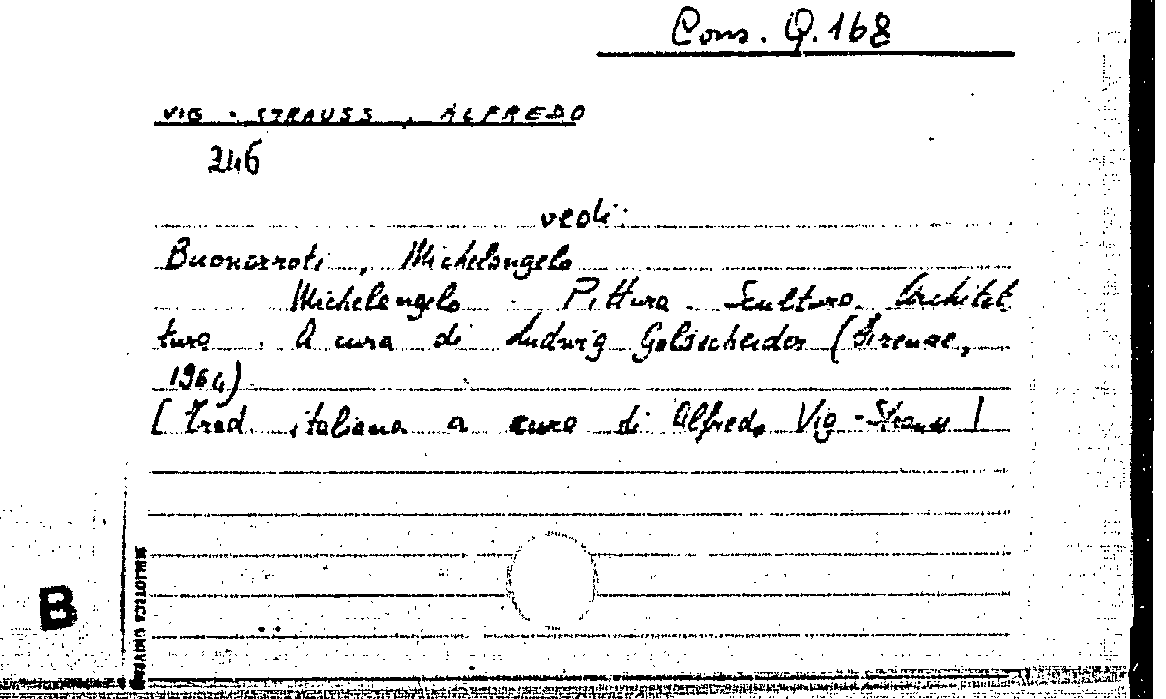 Cons. Q.168
VIG - STRAUSS, ALFREDO
246
vedi:
Buonarroti, Michelangelo
Michelangelo. Pittura. Scultura. Architet
tura. A cura di Ludwig Goldscheider (Firenze,
1964)
[Trad. italiana a cura di Alfredo Vig-Strauss]
B